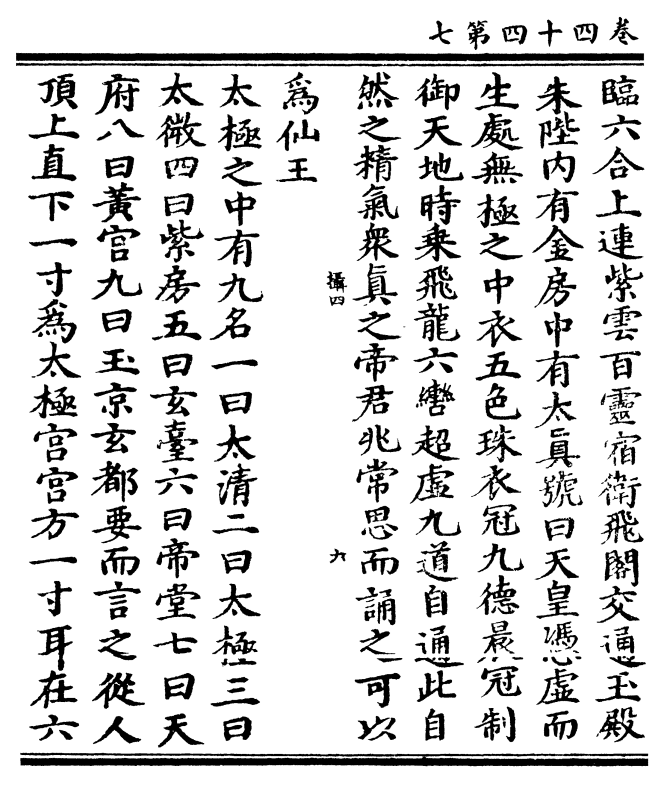 卷四十四第七
臨六合上連紫雲百靈宿衛飛閣交通玉殿
朱陛内有金房中有太眞號曰天皇憑虛而
生處無極之中衣五色珠衣冠九德晨冠制
御天地時乗飛龍六轡超虛九道自通此自
然之精氣衆眞之帝君兆常思而誦之可以
攝四 六
爲仙王
太極之中有九名一曰太清二曰太極三曰
太微四曰紫房五曰玄臺六曰帝堂七曰天
府八曰黃宮九曰玉京玄都要而言之從人
頂上直下一寸爲太極宮宮方一寸耳在六